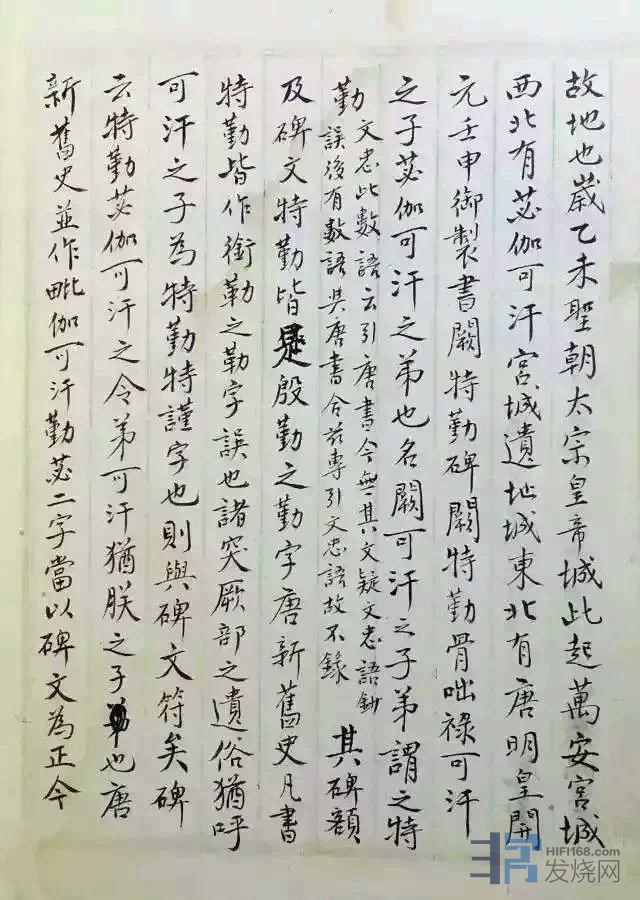 故地也歲乙未聖朝太宗皇帝城此起萬安宮城
西北有苾伽可汗宮城遺址城東北有唐明皇開
元壬申御製書闕特勤碑闕特勤骨咄祿可汗
之子苾伽可汗之弟也名闕可汗之子弟謂之特
勤
文忠此數語云引唐書今無其文疑文忠語鈔
誤後有數語與唐書合茲專引文忠語故不錄
其碑額
及碑文特勤皆是殷勤之勤字唐新舊史凡書
特勤皆作銜勒之勒字誤也諸突厥部之遺俗猶呼
可汗之子為特勤特謹字也則與碑文符矣碑
云特勤苾伽可汗之令弟可汗猶朕之子也唐
新舊史並作毗伽可汗勤苾二字當以碑文為正今
HIFI168.com
发烧网